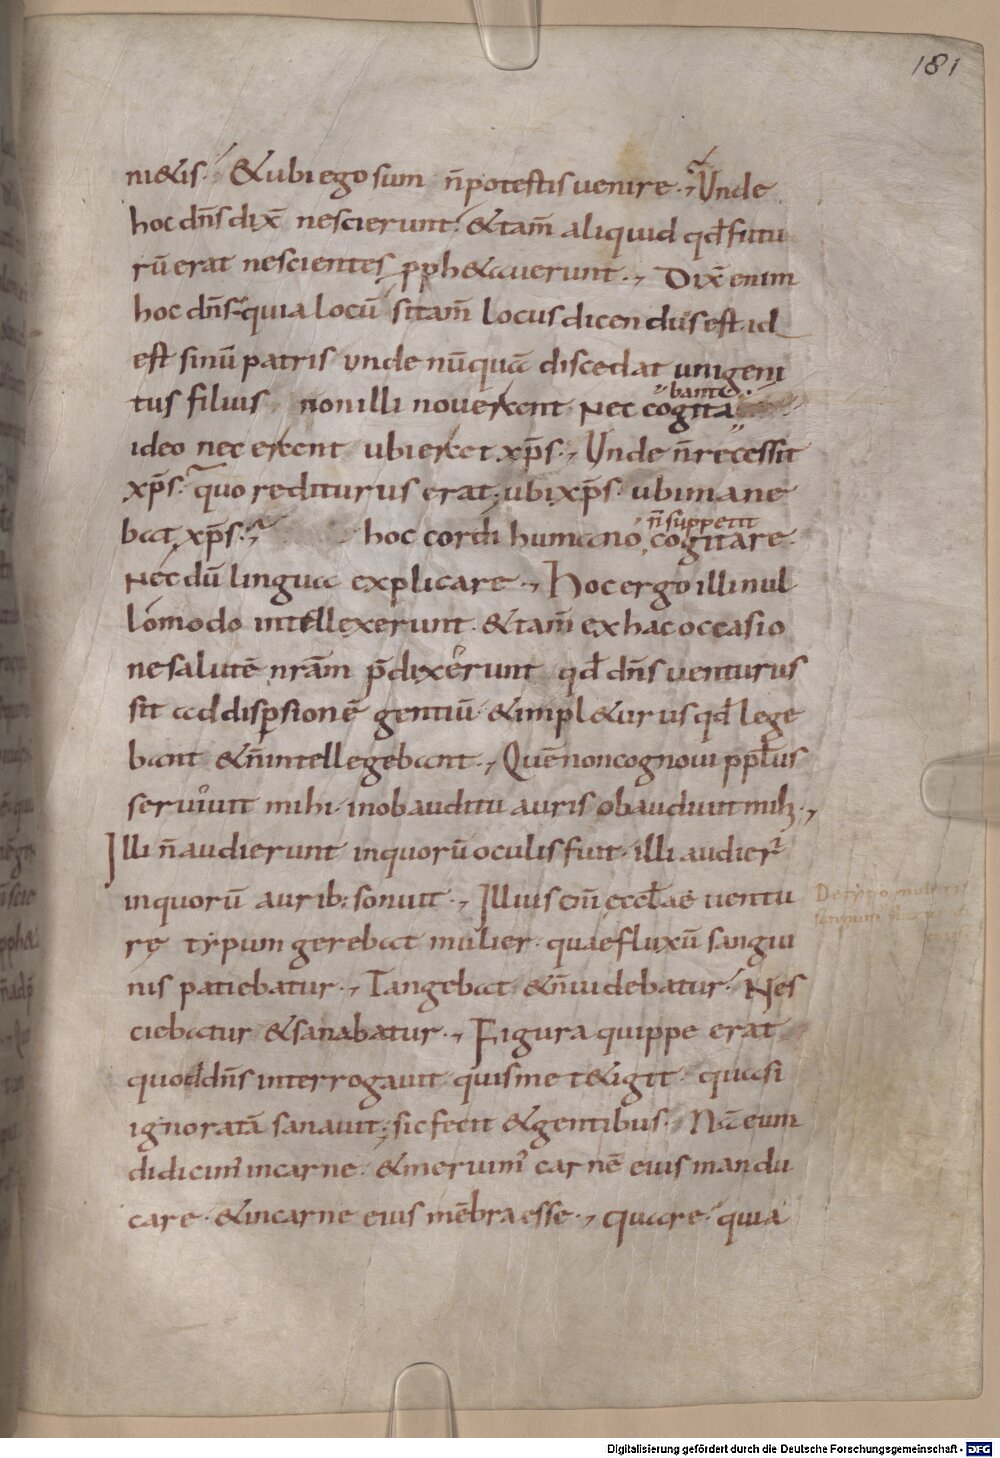 181
ni&is· &ubi ego sum n̄ potestis uenire·, Unde
hoc dn̄s dix̄ nescierunt· &tam̄ aliquid qđ futu
rū erat nescientes pph&auerunt·, Dix̄ enim
hoc dn̄s· quia locū sitam̄ locus dicendus est· id
est sinū patris unde nūquā discedat unigeni
tus filius non illi nouerant· Nec cogita
bant·
ideo nec erant ubi erat xp̄s·, Unde n̄ recessit
xp̄s· quo rediturus erat· ubi xp̄s· ubi mane
bat xp̄s·, hoc cordi humano cogitare·
n̄ suppetit
Nec dū lingua explicare·, Hoc ergo illi nul
lo modo intellexerunt· &tam̄ ex hac occasio
ne salutē nrām p̄dixerunt qđ dn̄s uenturus
sit ad dispersionē gentiū· &impl&urus qđ lege
bant &n̄ intellegebant·, Quē non cognoui pplus
seruiuit mihi· in obauditu auris obaudiuit mihi·,
Illi n̄ audierunt in quorū oculis fuit· illi audier̄
in quorū aurib: sonuit·, Illius eni ecclae uentu
rę typum gerebat mulier· quae fluxū sangui
nis patiebatur·, Tangebat &n̄ uidebatur· Nes
ciebatur &sanabatur·, Figura quippe erat
quod dn̄s interrogauit quis me t&igit· quasi
ignoratā sanauit· sic fecit &gentibus· Nā eum
didicim' in carne· &meruim' carnē eius mandu
care· &in carne eius mēbra esse·, quare· quia
De typo mulieris
Digitalisierung gefördert durch die Deutsche Forschungsgemeinschaft - DFG